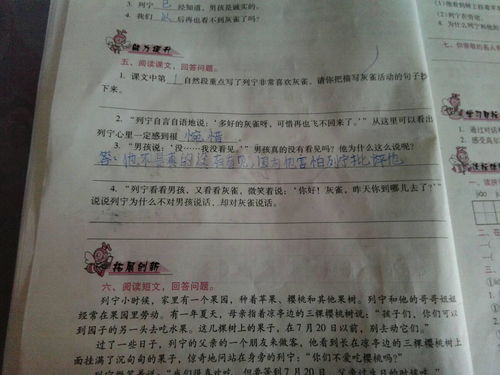 3. 列宁已经知道，男孩是诚实的。
4. 我们以后再也看不到灰雀了吗？
能力提升
五、阅读课文，回答问题。
1. 课文中第1自然段重点写了列宁非常喜欢灰雀，请你把描写灰雀活动的句子抄
下来。
2. “列宁自言自语地说：‘多好的灰雀呀，可惜再也飞不回来了。’”从这里可以看出
列宁心里一定感到很惋惜
3. “男孩说：‘没……我没看见。’”男孩真的没有看见吗？他为什么这么说呢？
答：他不是真的没有看见，因为他害怕列宁批评他。
4. “列宁看看男孩，又看看灰雀，微笑着说：‘你好！灰雀，昨天你到哪儿去了？’”
说说列宁为什么不对男孩说话，却对灰雀说话。
拓展创新
六、阅读短文，回答问题。
列宁小时候，家里有一个果园，种着苹果、樱桃和其他果树。列宁和他的哥哥姐姐
经常在果园里劳动。有一年夏天，母亲指着凉亭边的三棵樱桃树说：“孩子们，你们可以
到园子的另一头去吃水果。这几棵树上的果子，在7月20日以前，别去动它们。”
过了一些日子，列宁的父亲的一个朋友来做客，他看到长在凉亭边的三棵樱桃树上
面挂满了沉甸甸的果子，惊奇地问站在身旁的列宁：“你们不爱吃樱桃吗？”
(2) 列宁在劳动。
七、
学习目标
1. 通过对话
2. 感受高尔
一、读拼